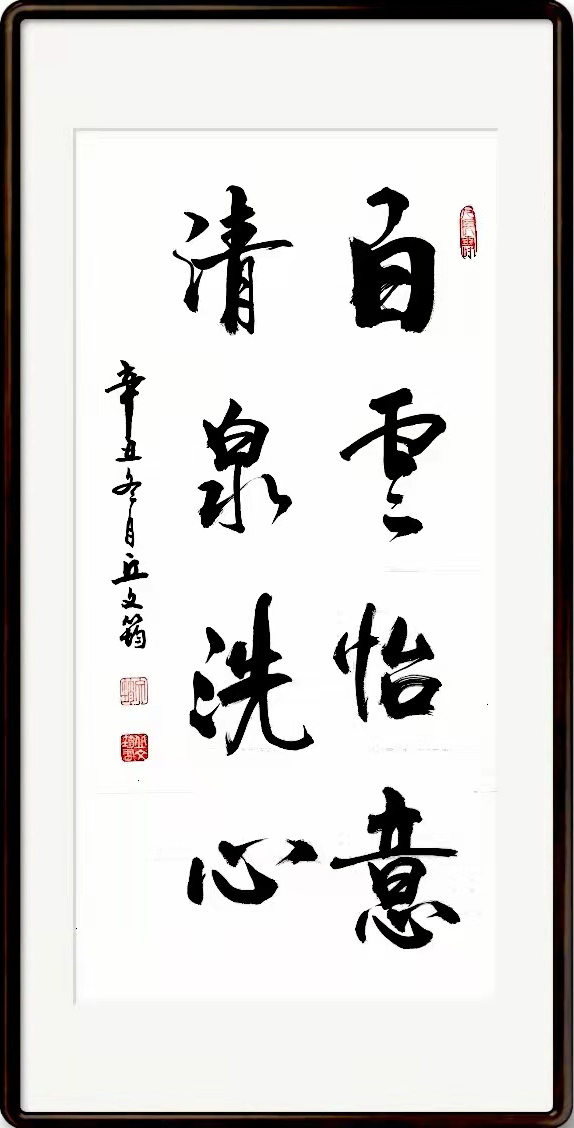 白雲怡意
清泉洗心
辛丑冬月丘文筠